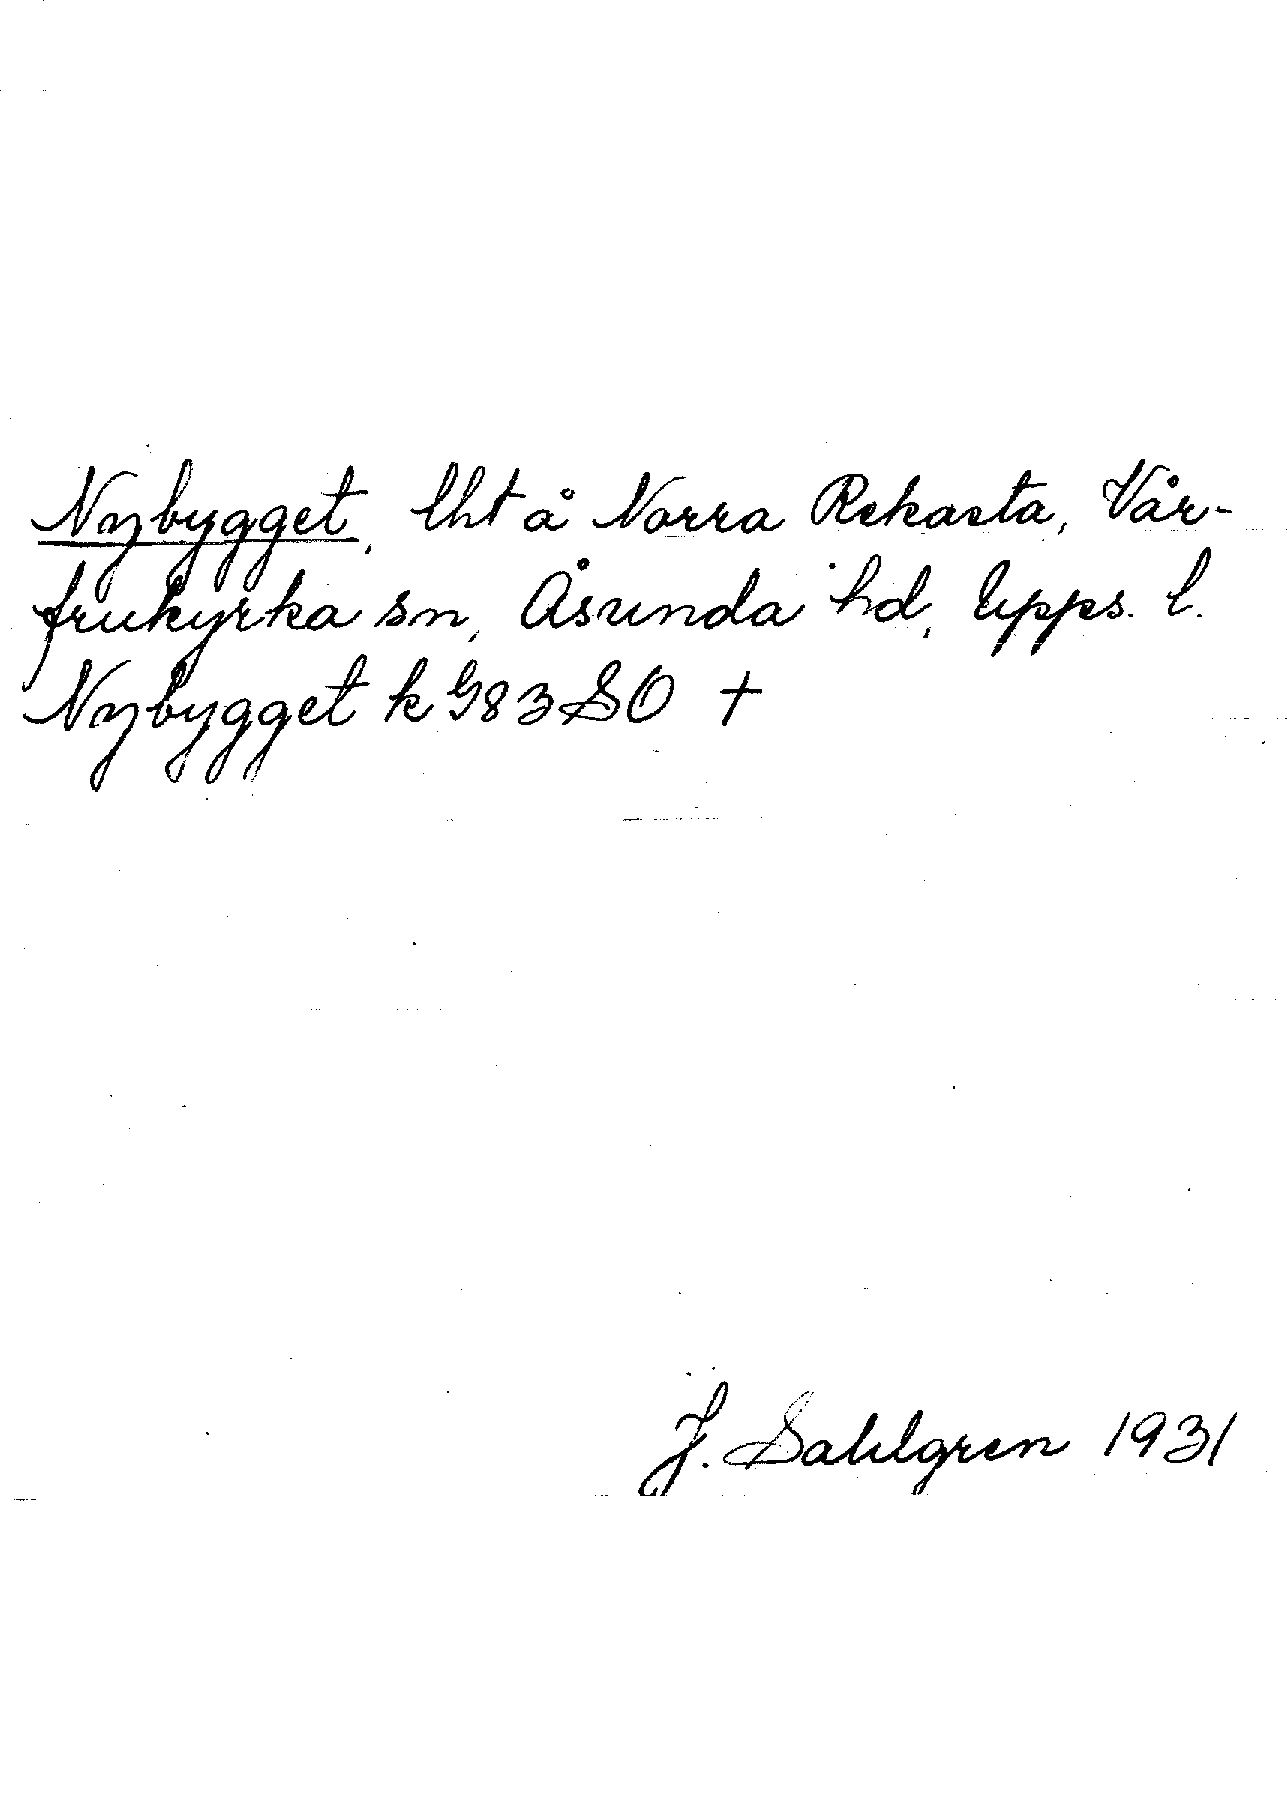 Nybygget, lht å Norra Rekasta, Vår-
frukyrka sn, Åsunda hd, Upps. l.
Nybygget k G83SO +
J. Sahlgren 1931